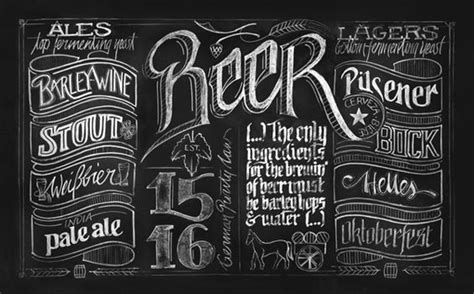 ALES
top fermenting yeast
BARLEYWINE
STOUT
Weißbier
INDIA
pale ale
Beer
EST.
15
16
German Purity law
[...] The only
ingredients
for the brewin
of beer must
be barley hops
& water [...]
LAGERS
bottom fermenting yeast
Pilsener
BOCK
Helles
Oktoberfest